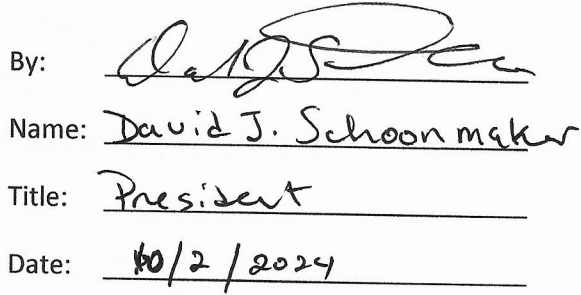 By:
Name: David J. Schoonmaker
Title: President
Date: 10/2/2024